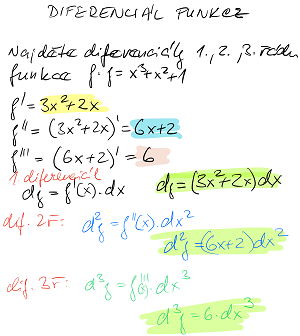 DIFERENCIÁL FUNKCE
Najděte diferenciály 1., 2., 3. řádu
funkce f: f = x³+x²+1
f' = 3x²+2x
f'' = (3x²+2x)' = 6x+2
f''' = (6x+2)' = 6
1 diferenciál
df = f'(x).dx df = (3x²+2x)dx
dif. 2Ř: d²f = f''(x).dx²
d²f = (6x+2)dx²
dif. 3Ř: d³f = f'''(x).dx³
d³f = 6.dx³